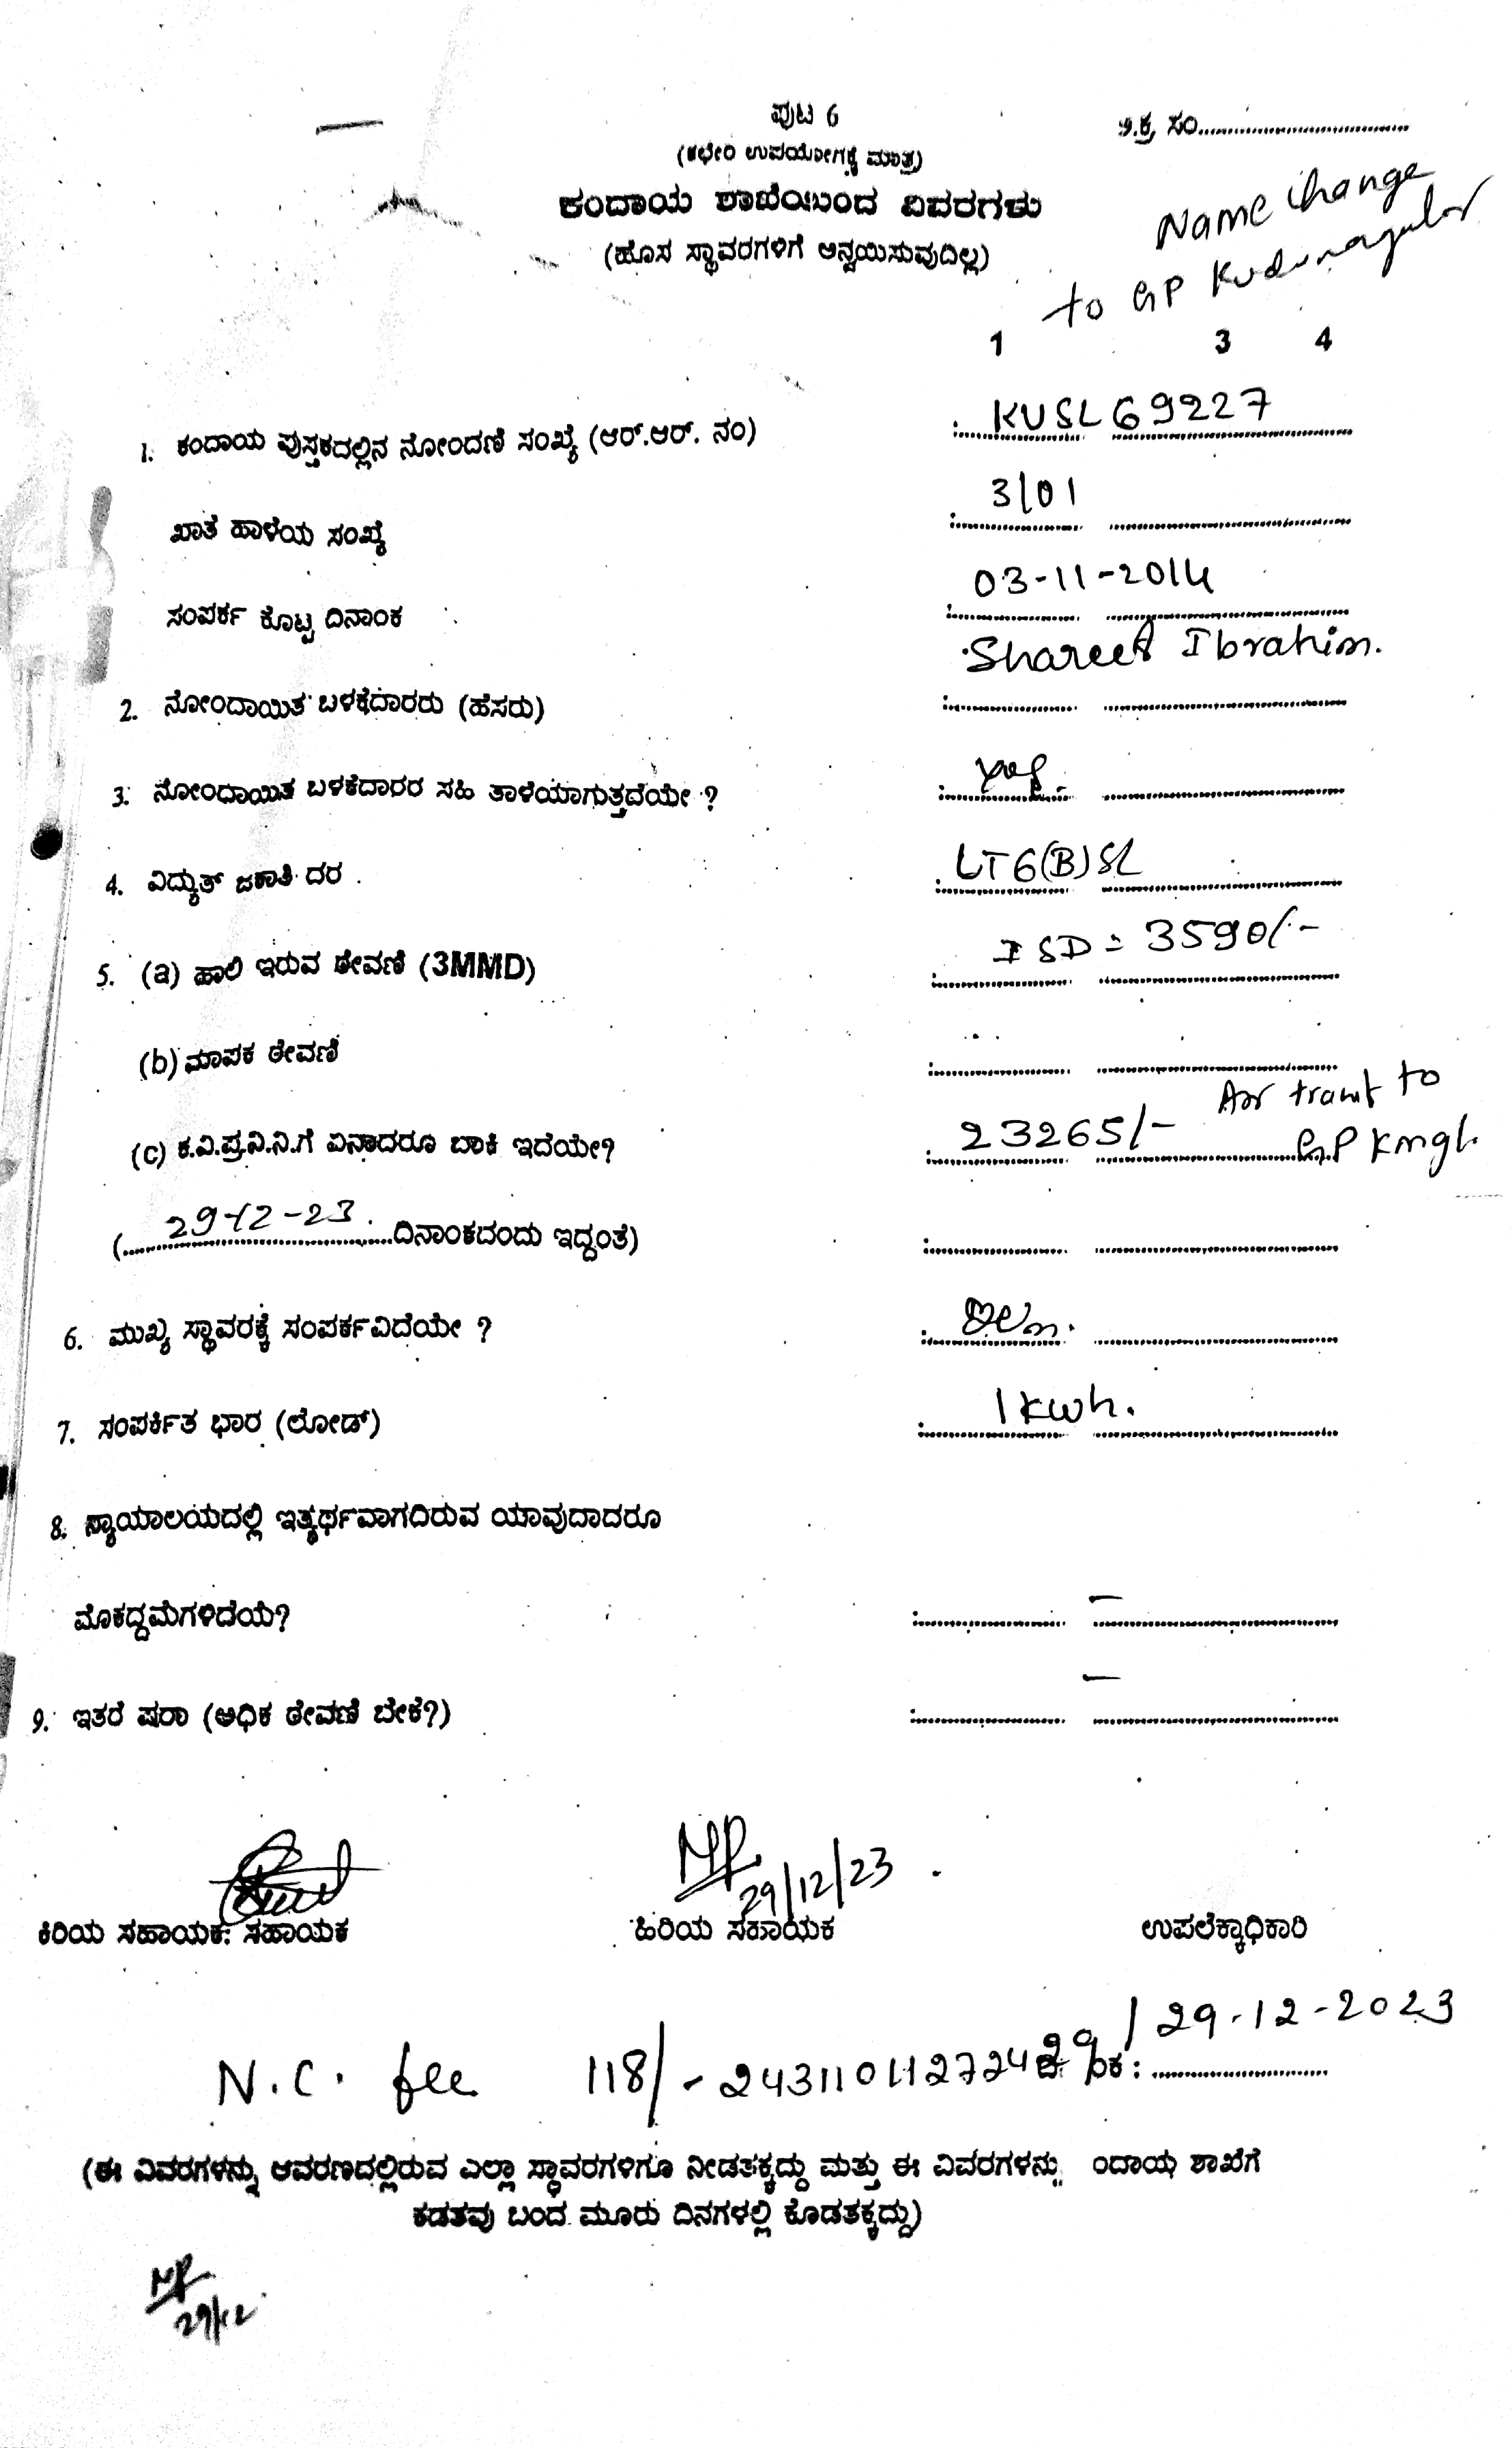 ಪುಟ 6
ಅ.ಕ್ರ ಸಂ..............................
(ಕಛೇರಿ ಉಪಯೋಗಕ್ಕೆ ಮಾತ್ರ)
ಕಂದಾಯ ಶಾಖೆಯಿಂದ ವಿವರಗಳು
(ಹೊಸ ಸ್ಥಾವರಗಳಿಗೆ ಅನ್ವಯಿಸುವುದಿಲ್ಲ)
Name Change
to GP
1 3 4
1. ಕಂದಾಯ ಪುಸ್ತಕದಲ್ಲಿನ ನೋಂದಣಿ ಸಂಖ್ಯೆ (ಆರ್.ಆರ್. ನಂ) : KUSL 69227
ಖಾತೆ ಹಾಳೆಯ ಸಂಖ್ಯೆ : 3/01
ಸಂಪರ್ಕ ಕೊಟ್ಟ ದಿನಾಂಕ : 03-11-2014
2. ನೋಂದಾಯಿತ ಬಳಕೆದಾರರು (ಹೆಸರು) : Shareef Ibrahim.
3. ನೋಂದಾಯಿತ ಬಳಕೆದಾರರ ಸಹಿ ತಾಳೆಯಾಗುತ್ತದೆಯೇ ? :
4. ವಿದ್ಯುತ್ ಜಕಾತಿ ದರ : LT6(B)SL
5. (a) ಹಾಲಿ ಇರುವ ಠೇವಣಿ (3MMD) : ISD = 3590/-
(b) ಮಾಪಕ ಠೇವಣಿ :
(c) ಕ.ವಿ.ಪ್ರ.ನಿ.ನಿ.ಗೆ ಏನಾದರೂ ಬಾಕಿ ಇದೆಯೇ? : 23265/- to G.P Kmgl.
(29-12-23 ದಿನಾಂಕದಂದು ಇದ್ದಂತೆ) :
6. ಮುಖ್ಯ ಸ್ಥಾವರಕ್ಕೆ ಸಂಪರ್ಕವಿದೆಯೇ ? :
7. ಸಂಪರ್ಕಿತ ಭಾರ (ಲೋಡ್) : 1kwh.
8. ನ್ಯಾಯಾಲಯದಲ್ಲಿ ಇತ್ಯರ್ಥವಾಗದಿರುವ ಯಾವುದಾದರೂ
ಮೊಕದ್ದಮೆಗಳಿದೆಯೆ? : —
9. ಇತರೆ ಷರಾ (ಅಧಿಕ ಠೇವಣಿ ಬೇಕೆ?) : —
29/12/23
ಕಿರಿಯ ಸಹಾಯಕ: ಸಹಾಯಕ ಹಿರಿಯ ಸಹಾಯಕ ಉಪಲೆಕ್ಕಾಧಿಕಾರಿ
N.C. fee 118/- / 29-12-2023
(ಈ ವಿವರಗಳನ್ನು ಆವರಣದಲ್ಲಿರುವ ಎಲ್ಲಾ ಸ್ಥಾವರಗಳಿಗೂ ನೀಡತಕ್ಕದ್ದು ಮತ್ತು ಈ ವಿವರಗಳನ್ನು ಂದಾಯ ಶಾಖೆಗೆ
ಕಡತವು ಬಂದ ಮೂರು ದಿನಗಳಲ್ಲಿ ಕೊಡತಕ್ಕದ್ದು)
29/12